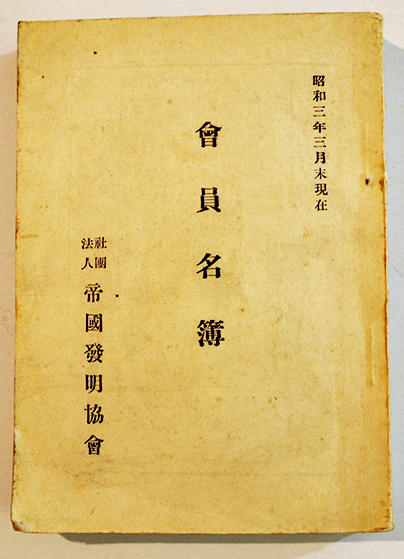 昭和三年三月末現在
會員名簿
社團法人 帝國發明協會